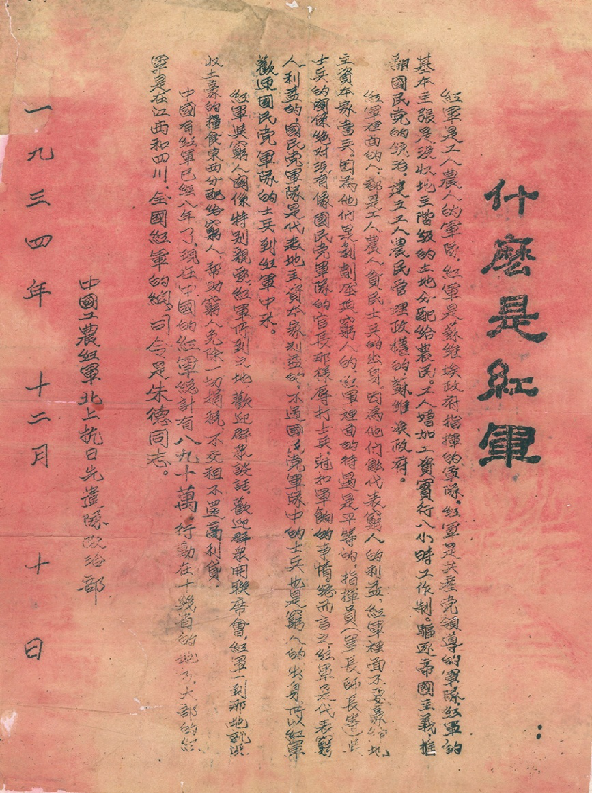 什麽是紅軍
紅軍是工人農人的軍隊，紅軍是蘇維埃政府指揮的軍隊，紅軍是共產党領導的軍隊，紅軍的
基本主張是沒收地主階級的土地分配給農民。工人增加工資實行八小時工作制。驅逐帝國主義推
翻國民党的統治，建立工人農民管理政權的蘇維埃政府。
紅軍裡面的人，都是工人農人貧民士兵的出身，因為他們代表窮人的利益，紅軍裡面不要豪紳地
主資本家當兵。因為他們是剝削壓迫窮人的，紅軍裡面的待遇是平等的，指揮員（軍長師長
士兵的關係絕对沒有像國民党軍隊的官長那樣辱打士兵，尅扣軍餉的事情，總而言之，紅軍是代表窮
人利益的，國民党軍隊是代表地主資本家利益的，不過國民党軍隊中的士兵也是窮人的出身，所以紅軍
歡迎國民党軍隊的士兵到紅軍中來。
紅軍與窮人關係特別親密，紅軍所到之地，歡迎群衆談話，歡迎群衆開聯席會，紅軍一到那地就沒
收土豪的糧食東西分配給窮人，帮助窮人免除一切捐税，不交租不還高利貸。
中國有紅軍已經八年了，現在中國的紅軍總計有八九十萬，行動在十幾省的地方，大部的紅
軍是在江西和四川，全國紅軍的總司令是朱德同志。
中國工農紅軍北上抗日先遣隊政治部
一九三四年 十二月 十日